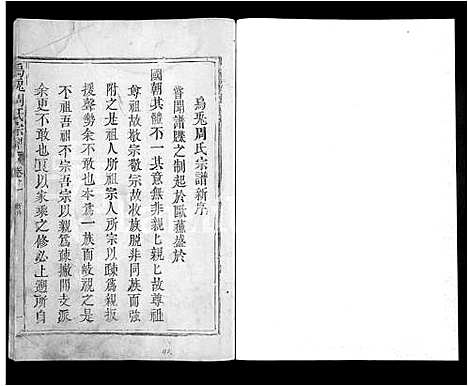 烏兎周氏宗譜新序
嘗聞譜牒之制起於歐蘇盛於
國朝其體不一其意無非親上親上故尊祖
尊祖故敬宗敬宗故收族脫非同族而強
附之是祖人所祖宗人所宗以疎為親扳
援聲勢余不敢也為一族而岐視之是
不祖吾祖不宗吾宗以親為疎撇開支派
余更不敢也良以家乘之修必上遡所自
烏兎周氏宗譜 卷之一